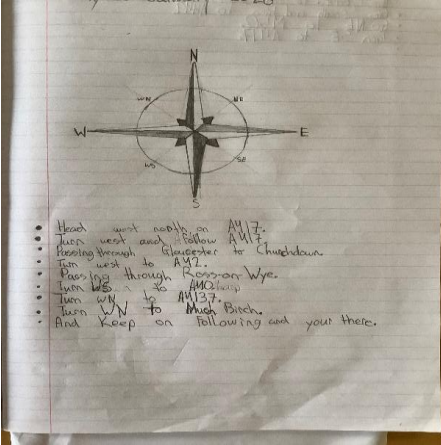 N
WN
NE
W
E
WS
SE
S
Head west north on A417.
Turn west and follow A417.
Passing through Gloucester to Churchdown.
Turn west to
Passing through Ross-on-Wye.
Turn WS to
Turn WN to A4137.
Turn WN to Much Birch.
And Keep on following and your there.